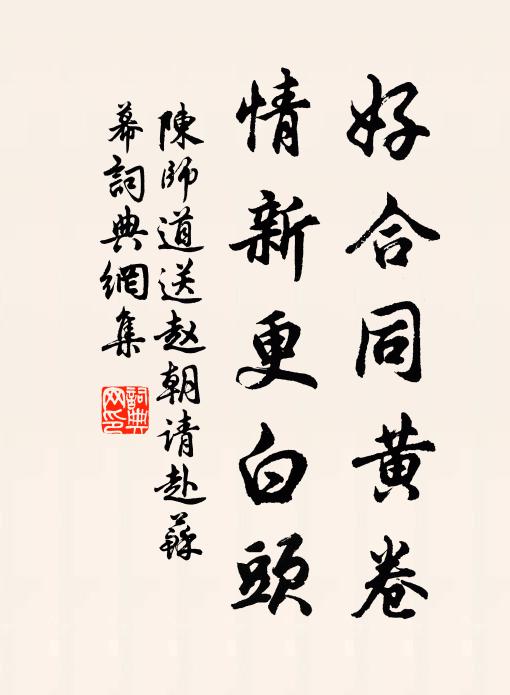 好合同黄卷
情新更白頭
陳師道送赵朝请赴蘇
幕詞典網集
詞典网印